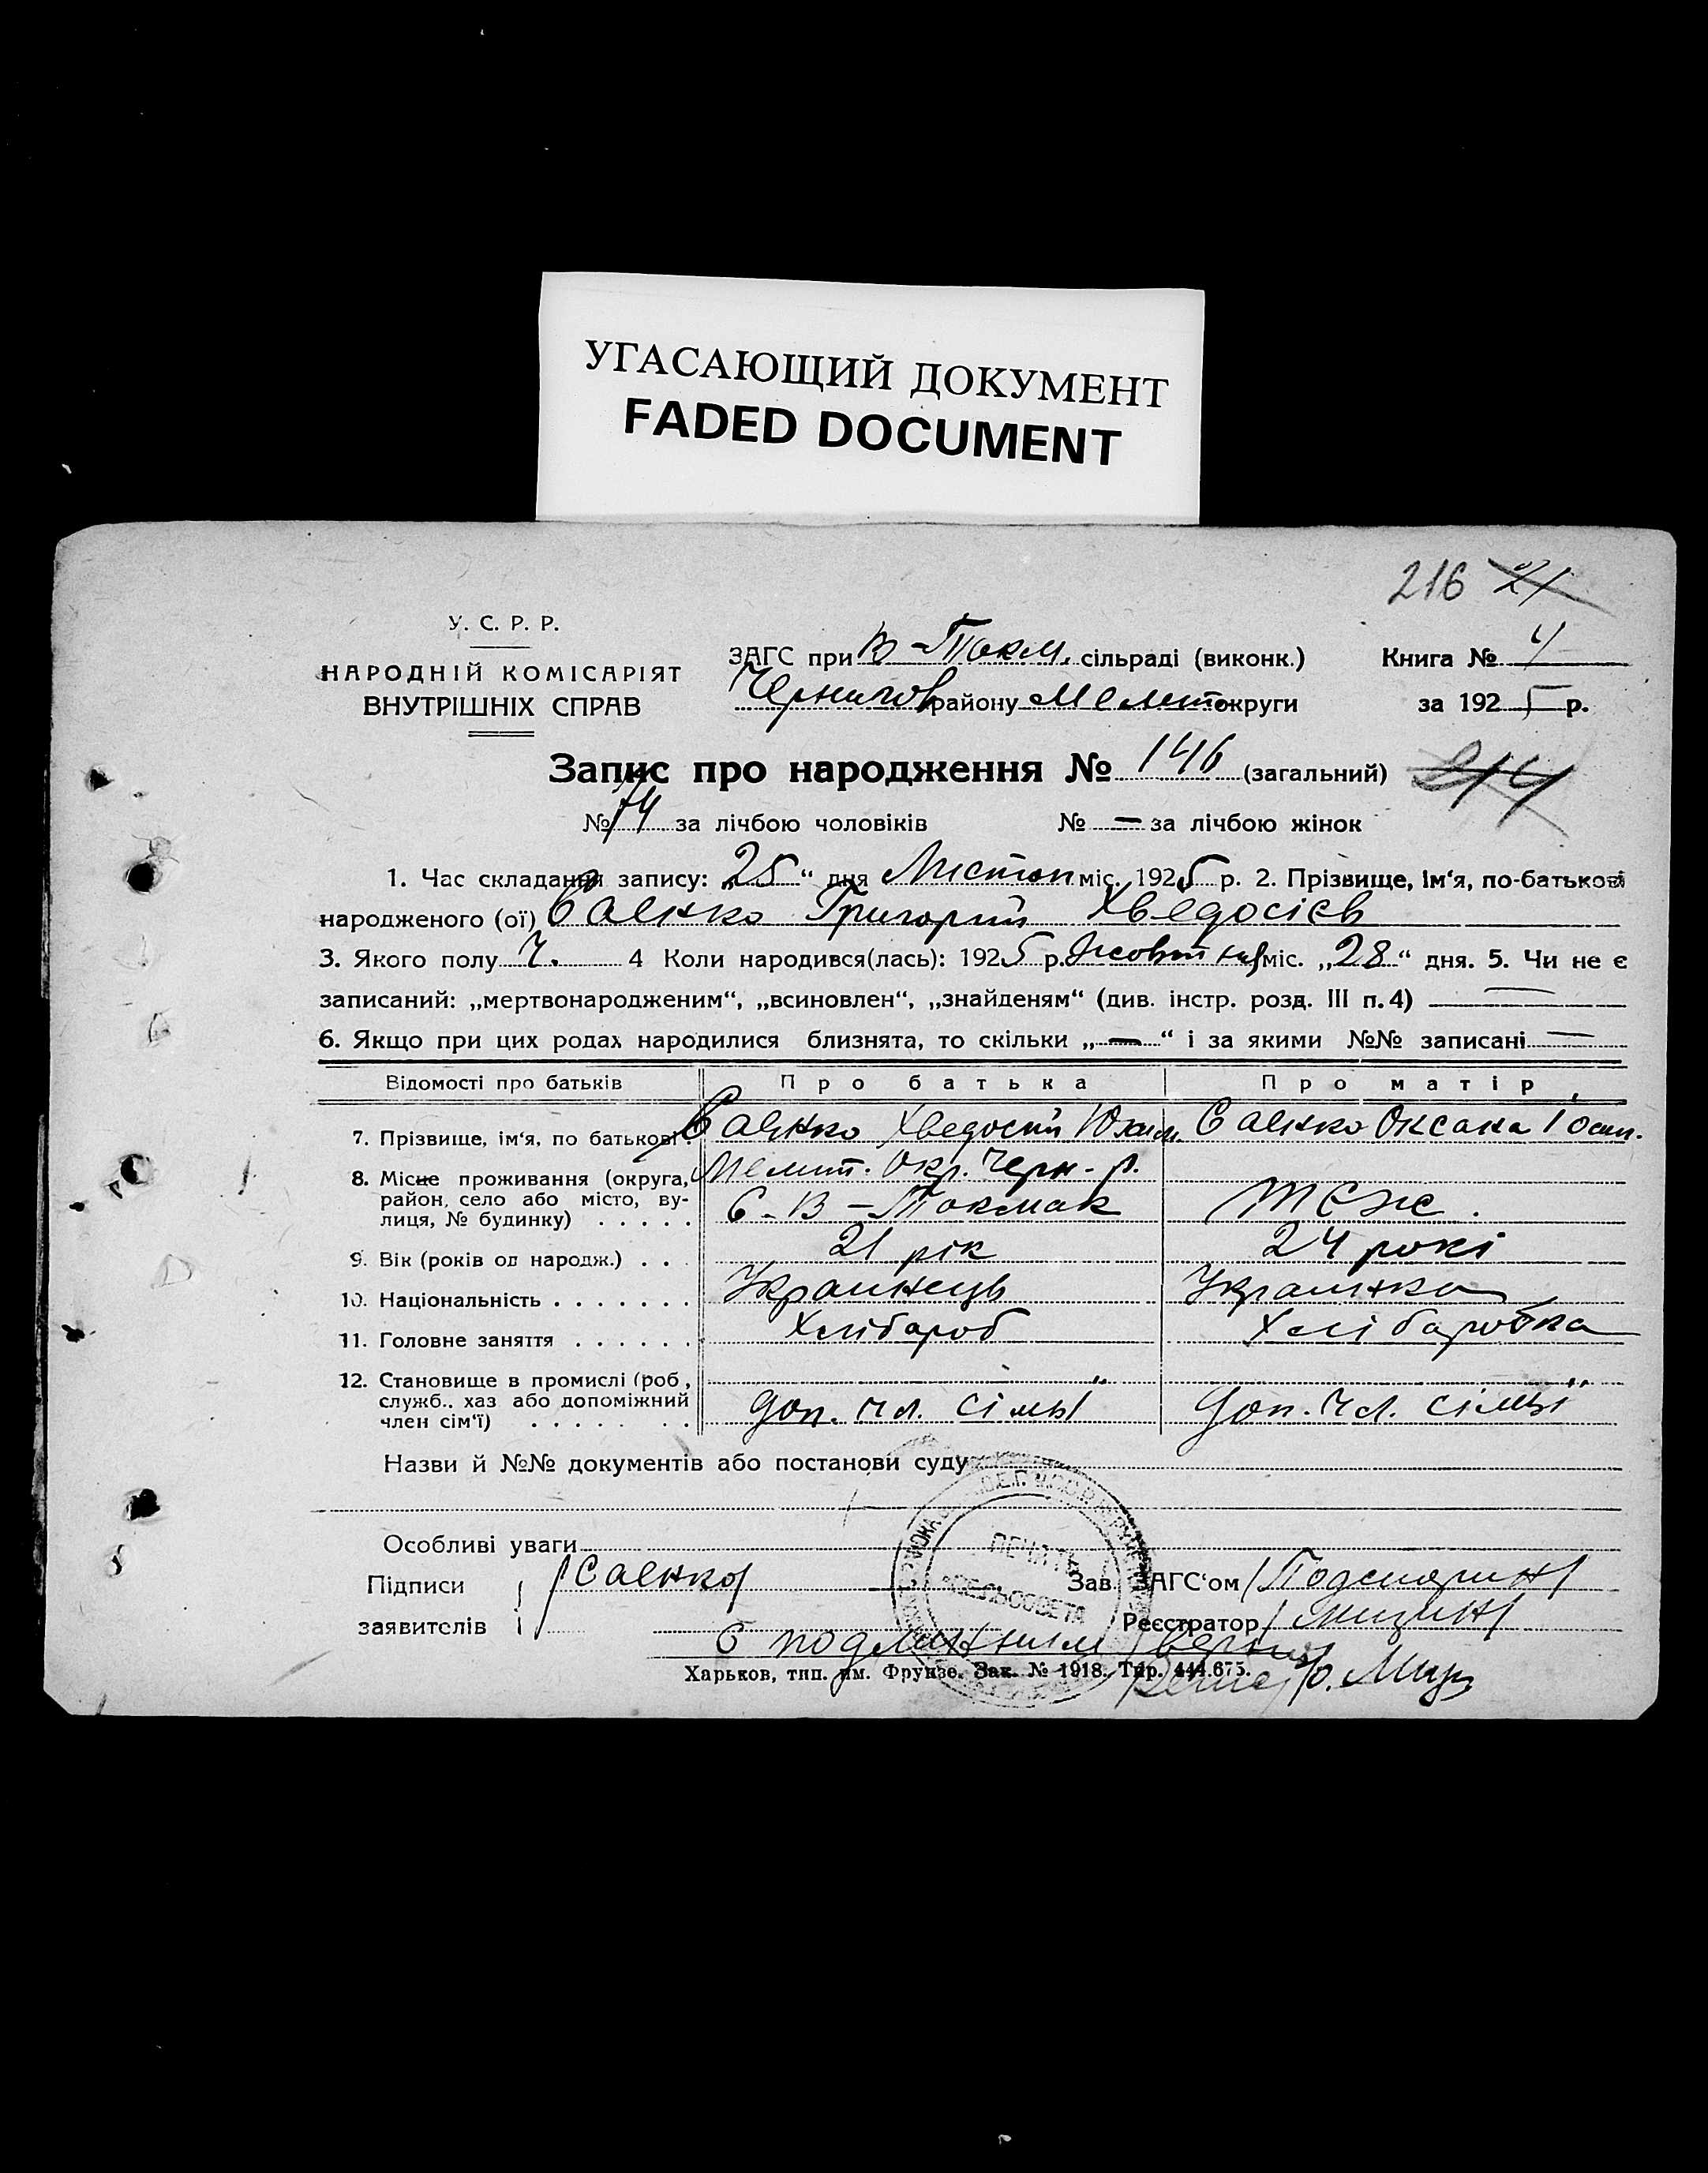 УГАСАЮЩИЙ ДОКУМЕНТ
FADED DOCUMENT
216 21
У. С. Р. Р.
НАРОДНІЙ КОМІСАРІЯТ
ВНУТРІШНІХ СПРАВ
ЗАГС при В-Токм. сільраді (виконк.) Книга № 4
Чернигов району Мелит округи за 1925 р.
Запис про народження № 146 (загальний) 214
№ 74 за лічбою чоловіків № — за лічбою жінок
1. Час складання запису: „25“ дня Листоп міс. 1925 р. 2. Прізвище, ім‘я, по-батькові
народженого (ої) Саенко Григорий Хведосієв
3. Якого полу Ч. 4 Коли народився(лась): 1925 р. Жовтня міс. „28“ дня. 5. Чи не є
записаний: „мертвонародженим“, „всиновлен“, „знайденям“ (див. інстр. розд. III п. 4) —
6. Якщо при цих родах народилися близнята, то скільки „—“ і за якими №№ записані —
Відомості про батьків Про батька Про матір
7. Прізвище, ім‘я, по батькові Саенко Хведосий Юхим. Саенко Оксана Іосип.
8. Місце проживання (округа, район, село або місто, вулиця, № будинку) Мелит. Окр. Черн. р.
С-В-Токмак Теж.
9. Вік (років од народж.) 21 рік 24 рокі
10. Національність Украинець Украинка
11. Головне заняття Хлібароб Хлібаробка
12. Становище в промислі (роб., служб., хаз або допоміжний член сім‘ї) доп. чл. сімьї доп. чл. сімьї
Назви й №№ документів або постанови суду
Особливі уваги
ПЕЧАТЬ
СЕЛЬСОВЕТА
Підписи /Саенко/ Зав. ЗАГС‘ом
заявителів Реєстратор
С подлинным верно
Харьков, тип. им. Фрунзе. Зак. № 1918. Тир. 444.675.